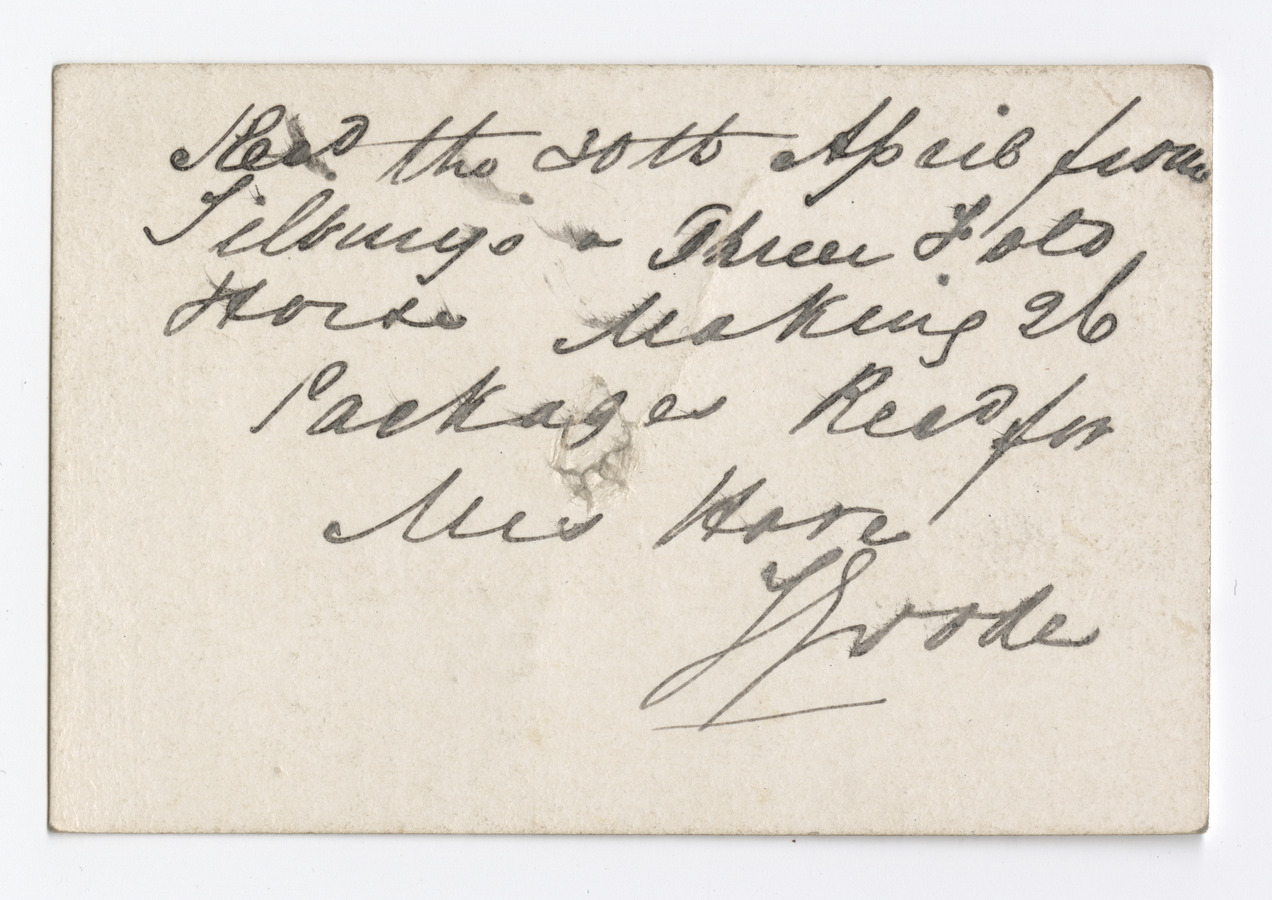 Recd the 30th April from
Tilburys a Three Fold
Horse Making 26
Packages Recd for
Mrs Hore
J Goode